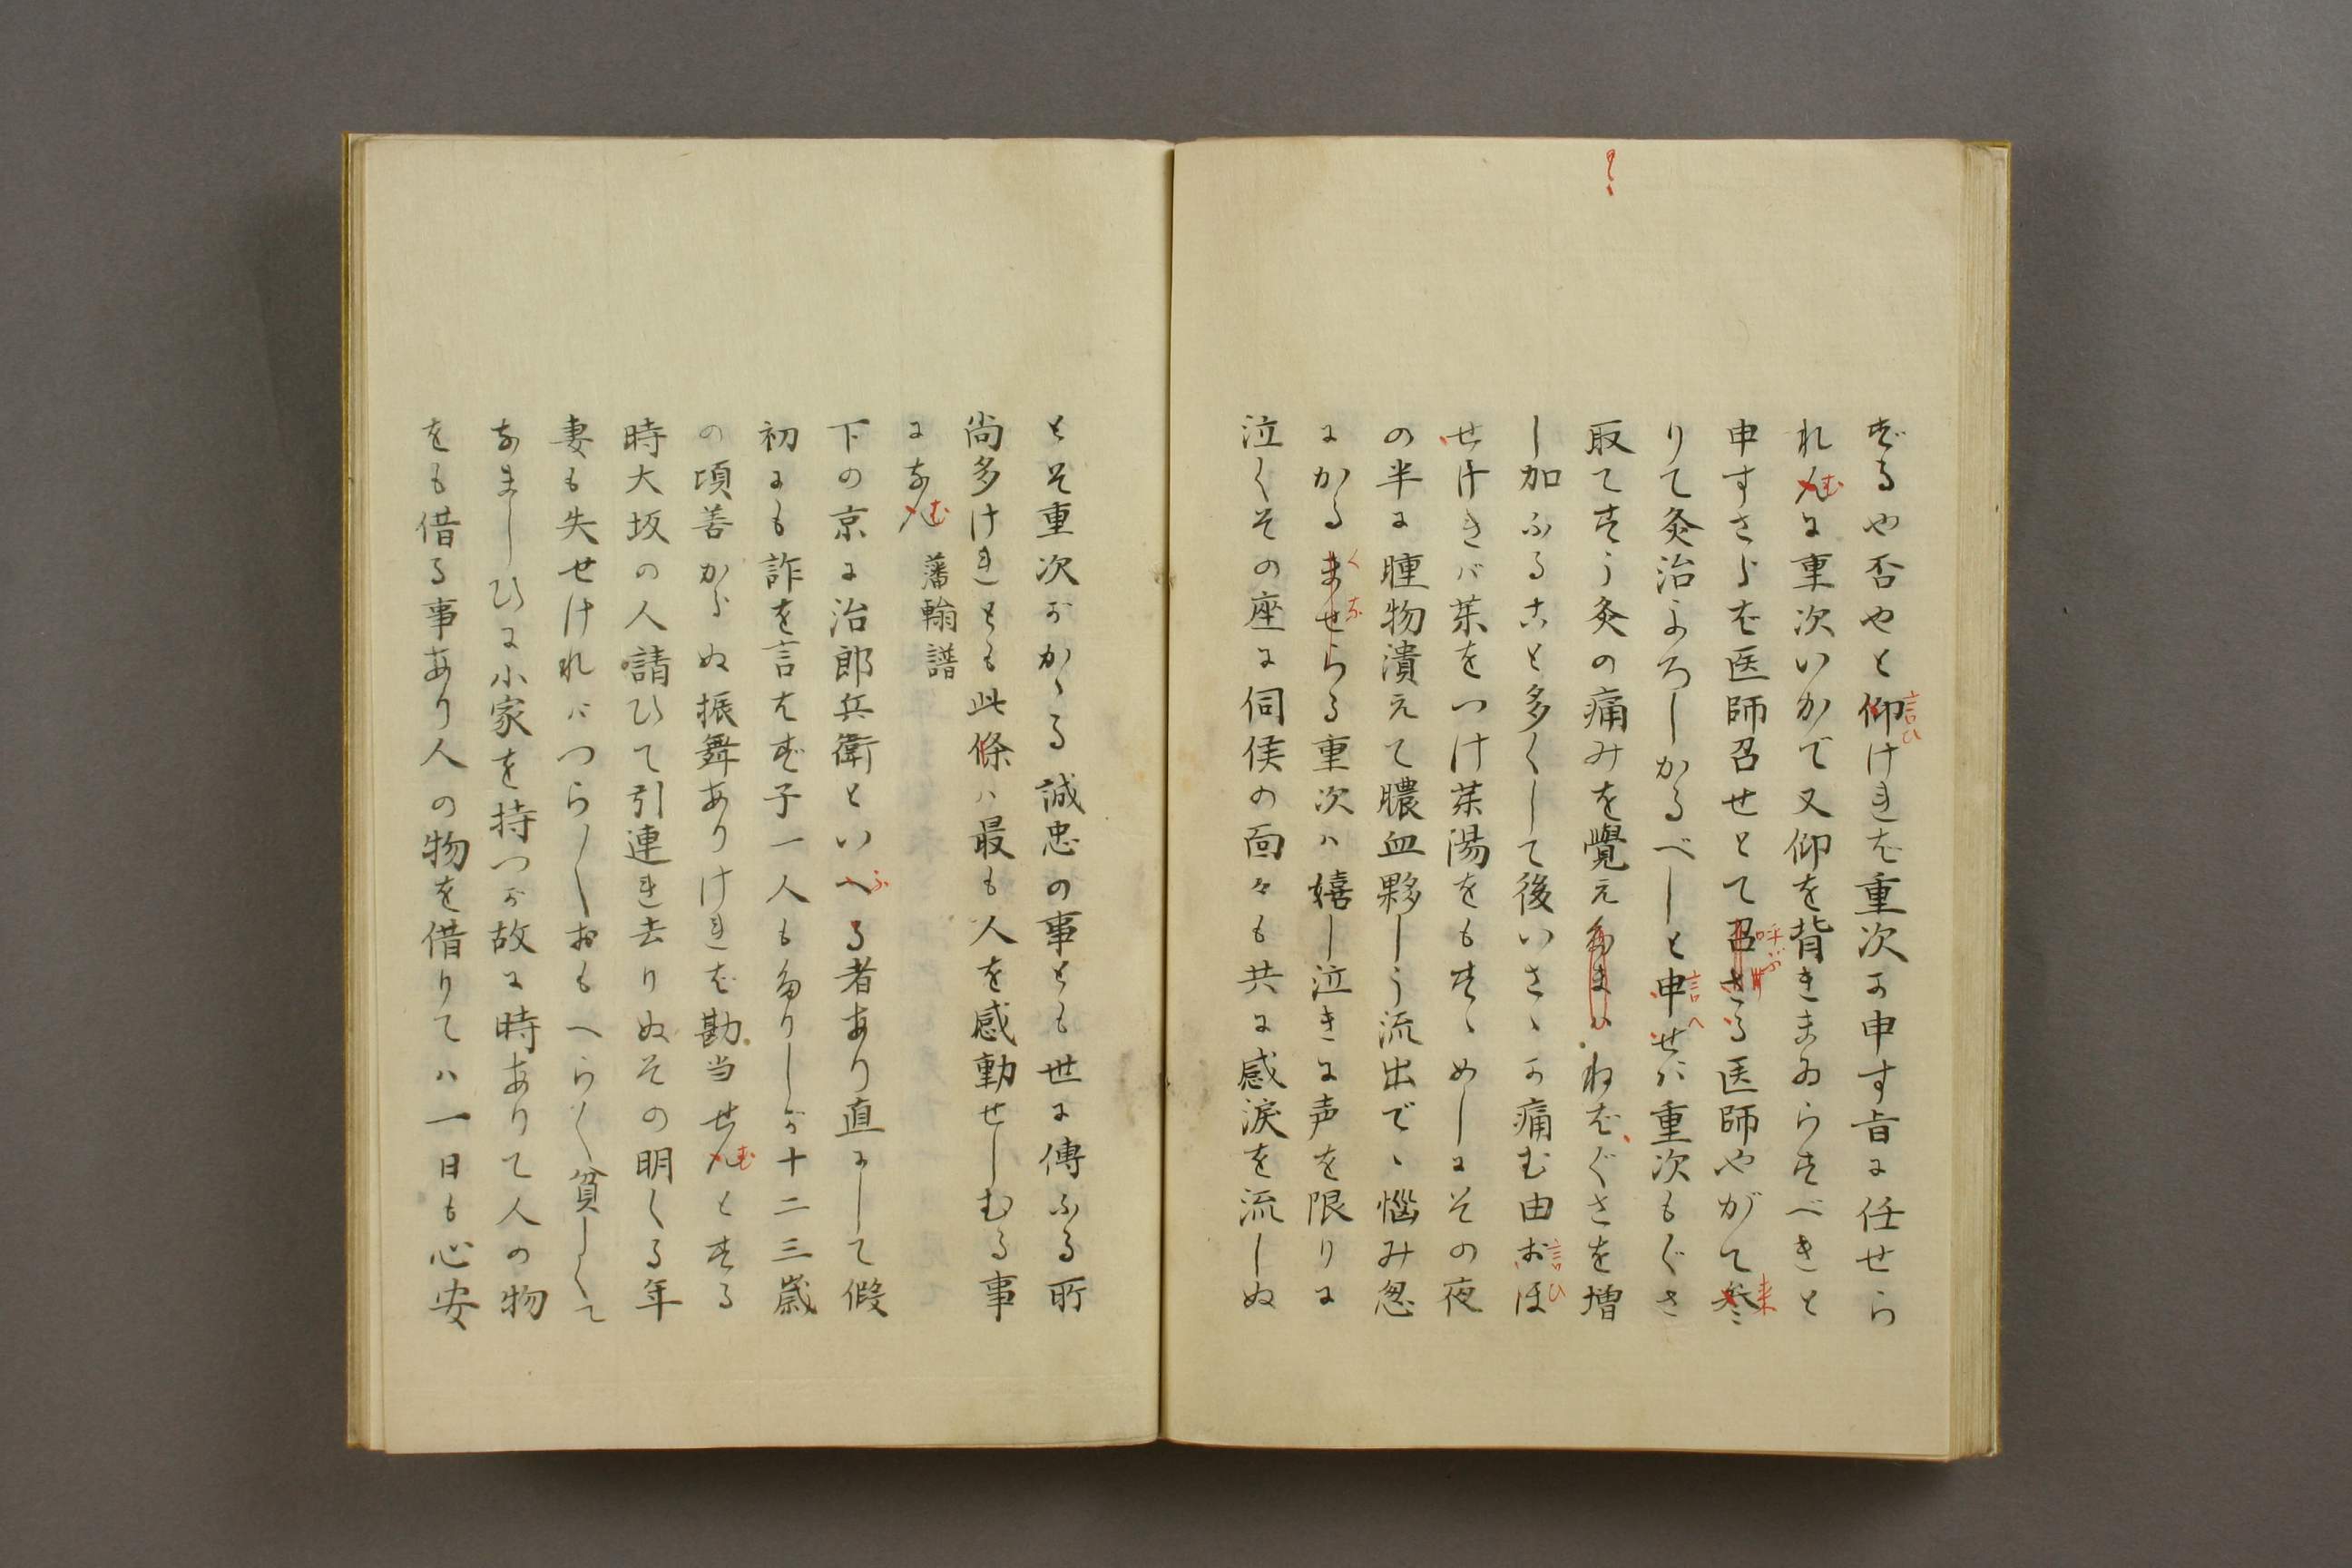 ざるや否やと仰けれを重次か申す旨に任せら
れんに重次いかで又仰を背きまゐらすべきと
申すさらを医師召せとて召さる医師やがて参
りて灸治よろしかるべしと申せバ重次もぐさ
取てすう灸の痛みを覺えたまハねをぐさを増
し加ふること多くして後いさゝか痛む由おほ
せけれバ茱をつけ茱湯をもすゝめしにその夜
の半に腫物潰えて膿血夥しう流出でゝ惱み忽
にかるませらる重次ハ嬉し泣きに声を限りに
泣くその座に伺侯の面々も共に感涙を流しぬ
とそ重次がかゝる誠忠の事とも世に傳ふる所
尚多けれとも此條ハ最も人を感動せしむる事
になん 藩翰譜
下の京に治郎兵衛といへる者あり直にして假
初にも詐を言はず子一人もたりしが十二三歳
の頃善からぬ振舞ありけれを勘当せんとする
時大坂の人請ひて引連れ去りぬその明くる年
妻も失せけれバつら〱おもへらく貧しくて
なましひに小家を持つが故に時ありて人の物
をも借る事あり人の物を借りてハ一日も心安
む
言ひ
呼ぶ
来
言へ
言ひ
く
な
む
ふ
む